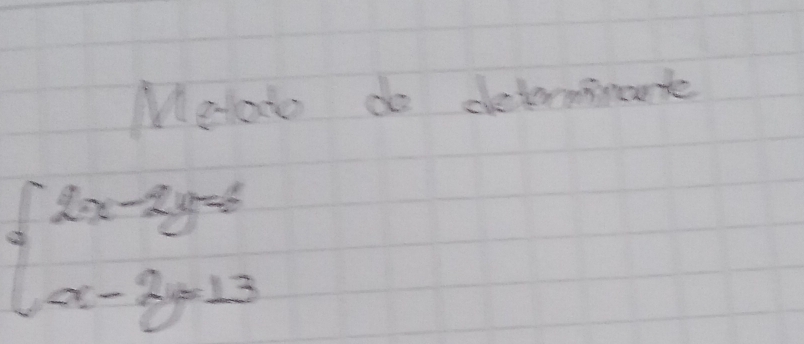 Metodo de determinante
2x-2y=6
x-2y=13